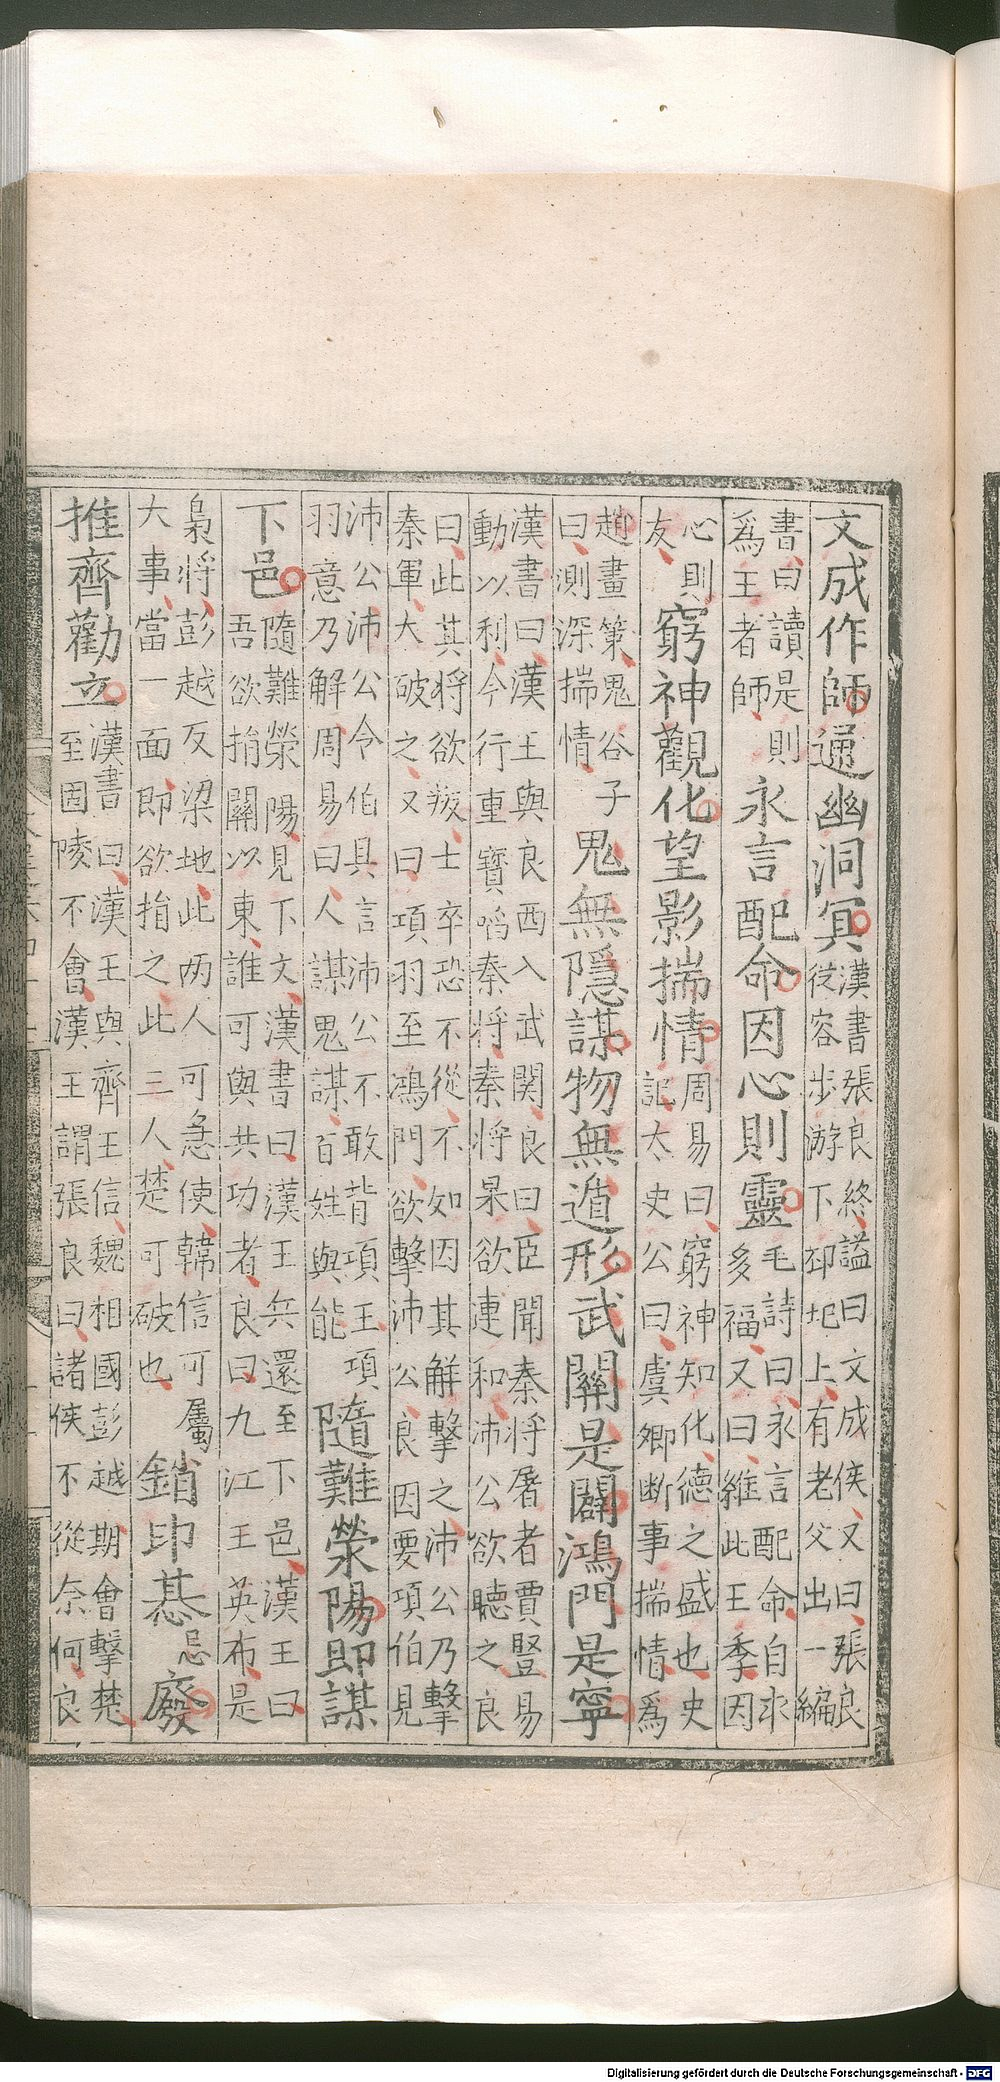 文成作師通幽洞冥漢書張良終謚曰文成侯又曰張良
從容步游下邳圯上有老父出一編
書曰讀是則
爲王者師永言配命因心則靈毛詩曰永言配命自求
多福又曰維此王季因
心則
友窮神觀化望影揣情周易曰窮神知化德之盛也史
記太史公曰虞卿斷事揣情爲
趙畫策鬼谷子
曰測深揣情鬼無隱謀物無遁形武關是闢鴻門是寧
漢書曰漢王與良西入武関良曰臣聞秦將屠者賈豎易
動以利今行重寶啗秦將秦將果欲連和沛公欲聽之良
曰此其將欲叛士卒恐不從不如因其解擊之沛公乃擊
秦軍大破之又曰項羽至鴻門欲擊沛公良因要項伯見
沛公沛公令伯具言沛公不敢背項王項
羽意乃解周易曰人謀鬼謀百姓與能隨難滎陽即謀
下邑隨難滎陽見下文漢書曰漢王兵還至下邑漢王曰
吾欲捐關以東誰可與共功者良曰九江王英布是
梟將彭越反梁地此两人可急使韓信可屬
大事當一面即欲捐之此三人楚可破也銷印惎忌廢
推齊勸立漢書曰漢王與齊王信魏相國彭越期會擊楚
至固陵不會漢王謂張良曰諸侯不從奈何良
Digitalisierung gefördert durch die Deutsche Forschungsgemeinschaft - DFG